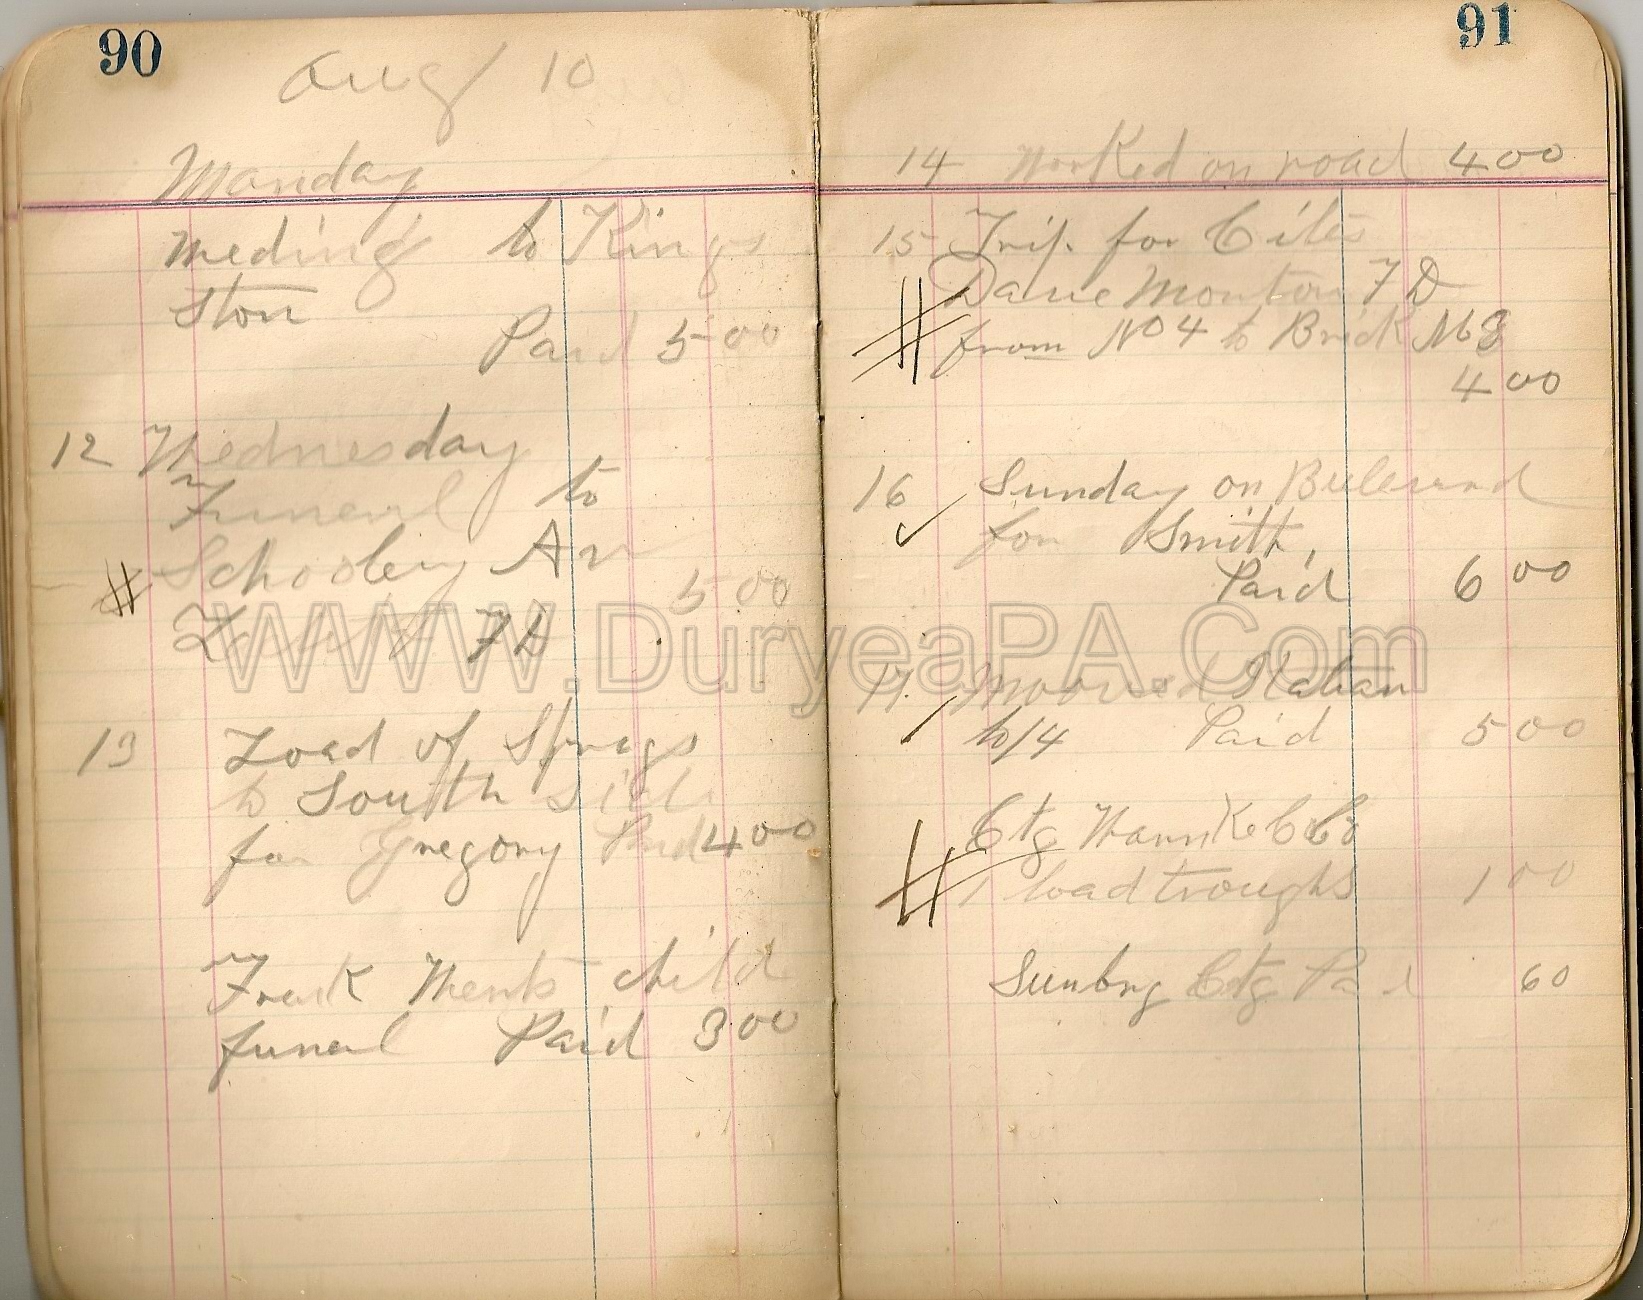 90
Aug 10
Monday
Weding to Kings
ton
Paid 5 00
12 Wednesday
Funerl to
Schooley Av
# 5 00
FD
13 Load of Sprags
to South Side
for Gregory Paid 4 00
Frank child
funerl Paid 3 00
91
14 Worked on road 4 00
15 Trip for Cites
# Dave Monton FD
from No 4 to Brick No 8
4 00
16 Sunday on
✓ for Smith,
Paid 6 00
17. Mooved Italian
to 14 Paid 5 00
Ctg
# 1 load troughs 1 00
Sunbry Ctg Paid 60
WWW.DuryeaPA.Com